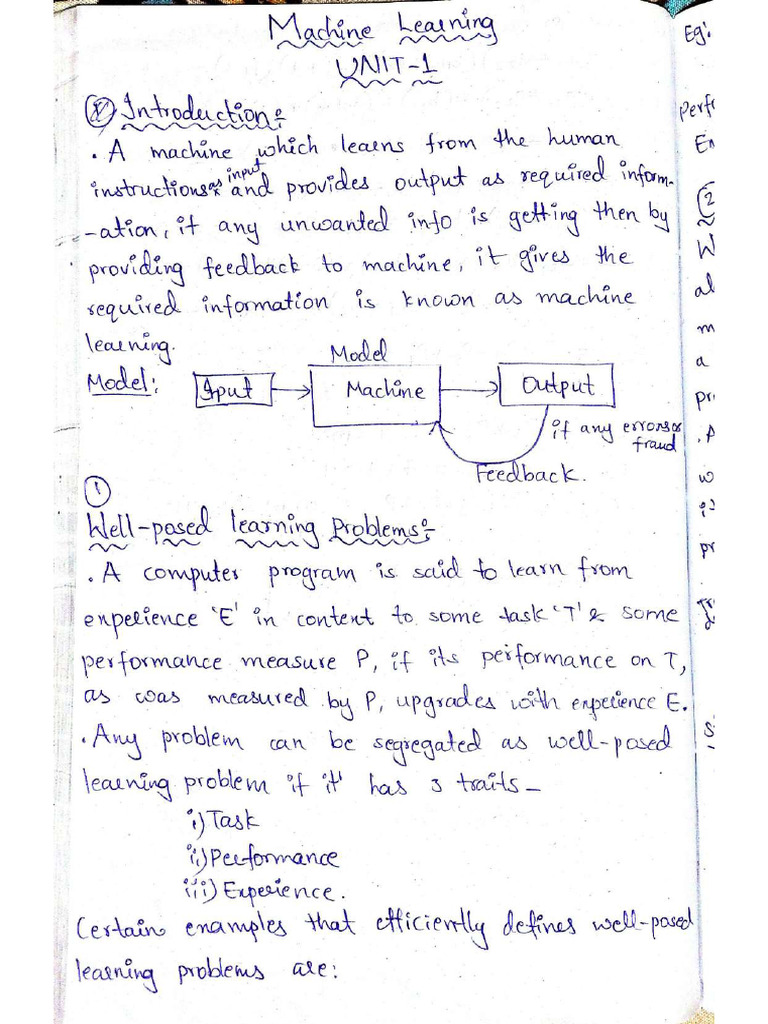 Machine Learning
UNIT-1
Introduction:
. A machine which learns from the human
instructions as input and provides output as required inform-
-ation, if any unwanted info is getting then by
providing feedback to machine, it gives the
required information is known as machine
learning.
Model
Model: Input Machine Output
if any errors or
fraud
Feedback.
1
Well-posed learning Problems:-
. A computer program is said to learn from
experience 'E' in content to some task 'T' & some
performance measure P, if its performance on T,
as was measured by P, upgrades with experience E.
. Any problem can be segregated as well-posed
learning problem if it has 3 traits-
i) Task
ii) Performance
iii) Experience.
Certain examples that efficiently defines well-posed
learning problems are:
Eg:
Perf
En
2
W
al
m
a
pr
. A
w
pr
S